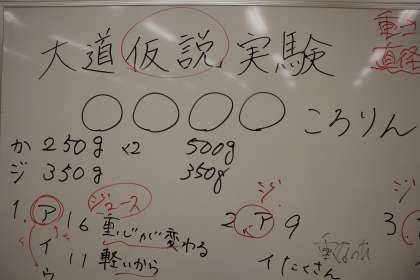 大道仮説実験
重さ
直径
〇〇〇〇ころりん
か 250g ×2 500g
ジ 350g 350g
ジュース
1. ア 16 重心が変わる
イ 11 軽いから
ウ
ジ
2 ア 9
イ たくさん
ジ
3